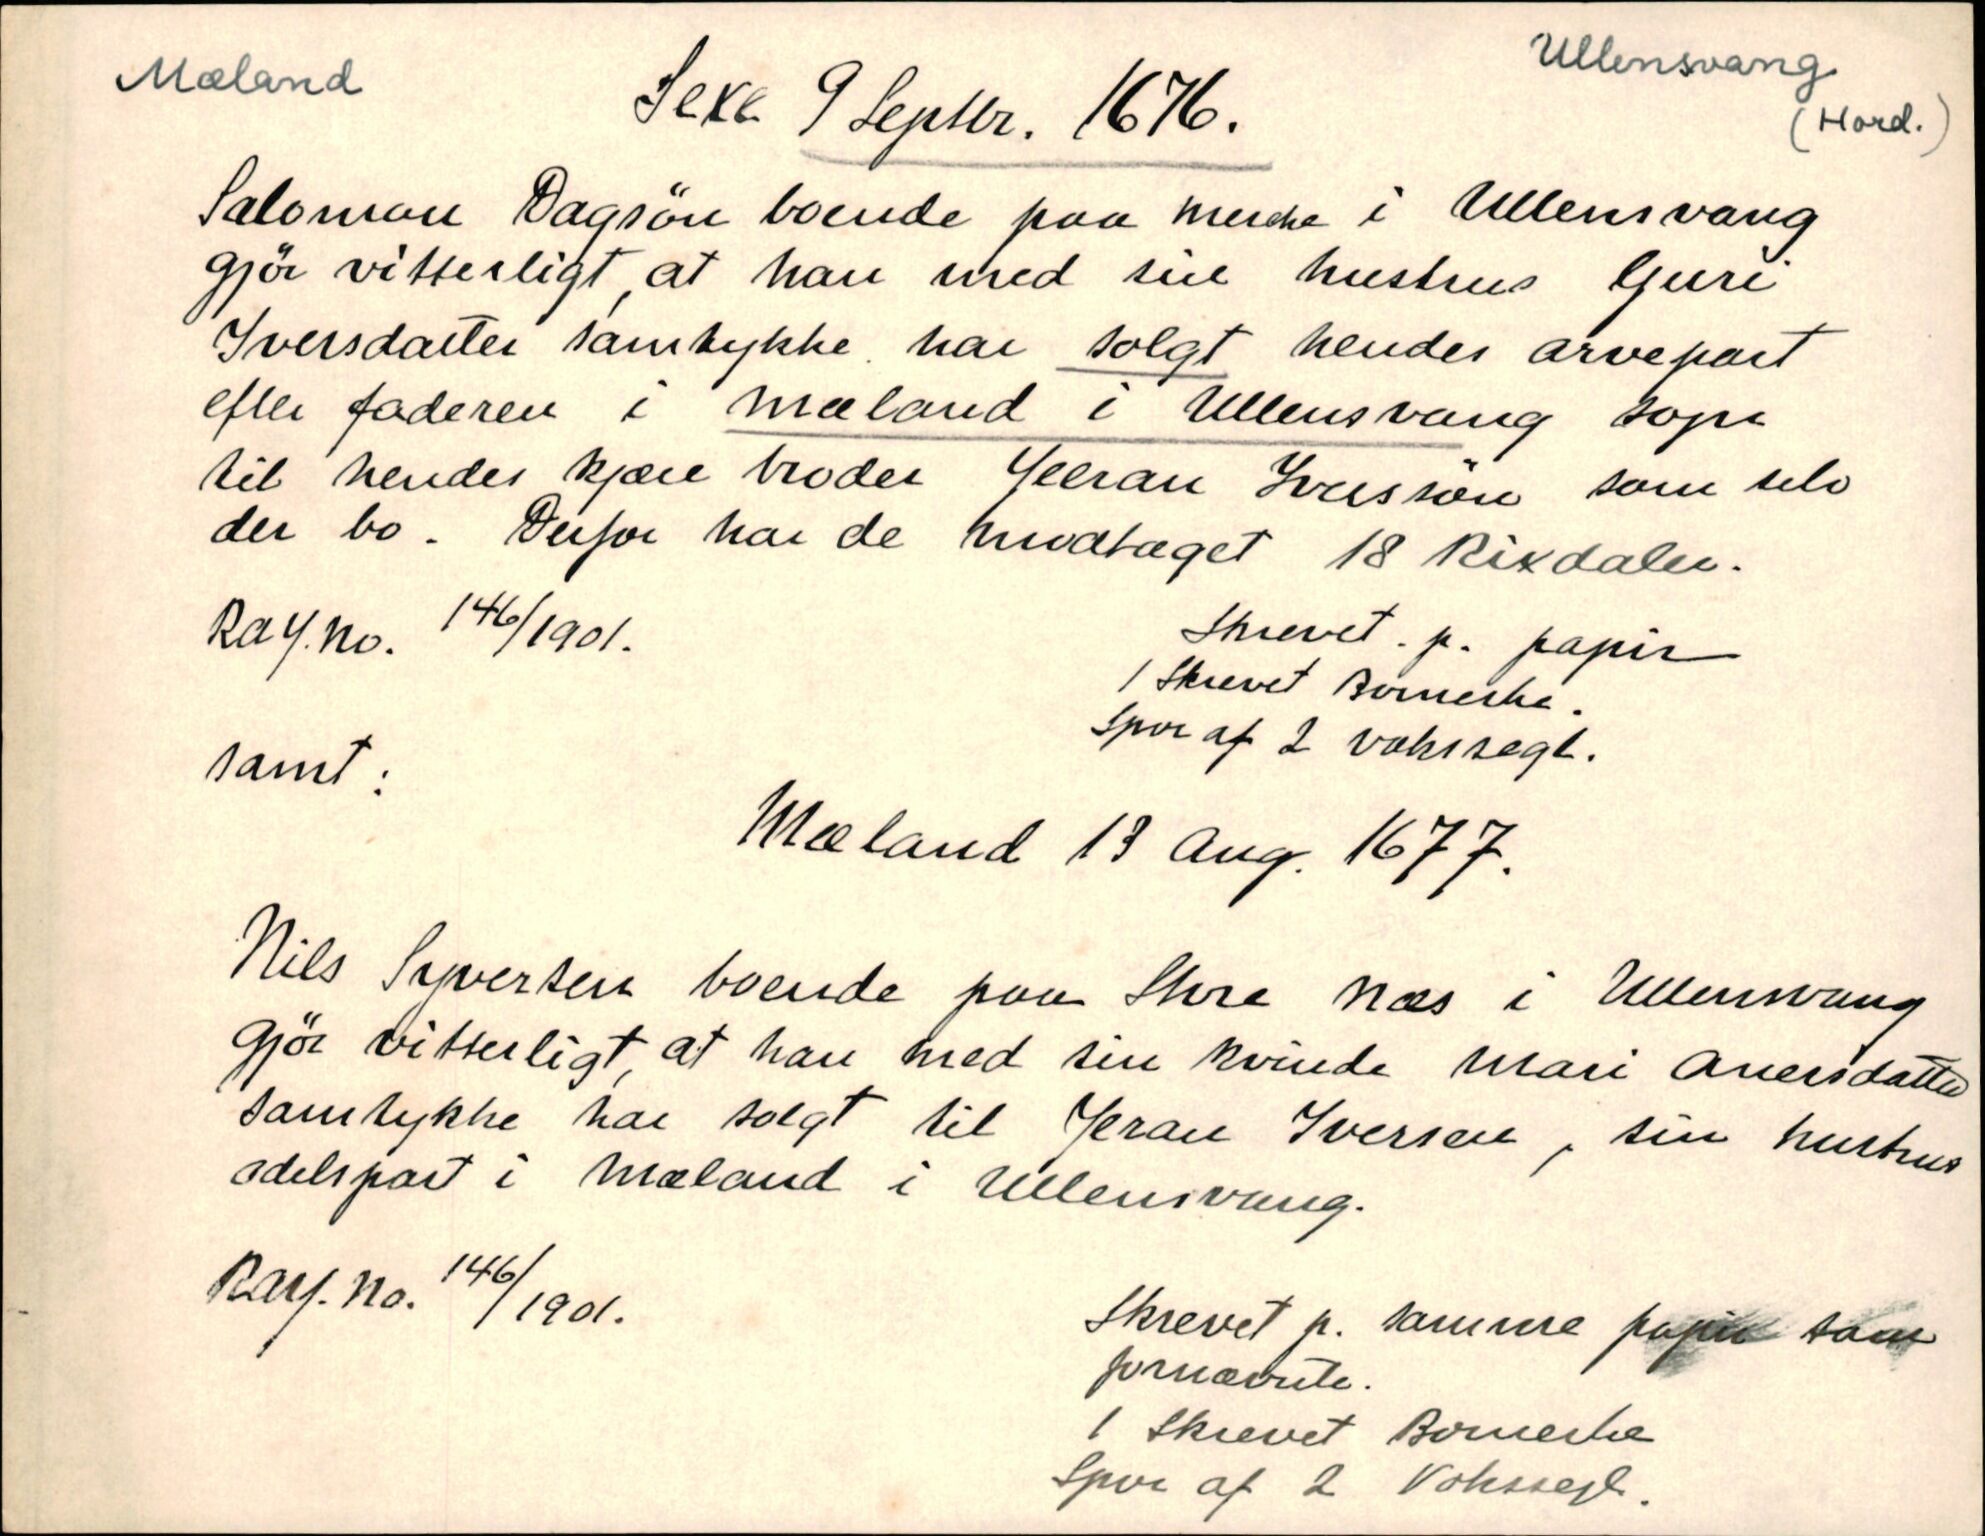 Mæland
Ullensvang
(Hord.)
Sexe 9 Septbr. 1676.
Salomon Dagsön boende paa Merche i Ullensvang
gjör vitterligt, at han med sin hustrus Guri
Iversdatter samtykke har solgt hendes arvepart
efter faderen i Mæland i Ullensvang sogn
til hendes kjære broder Jeeran Iversön som selv
der bo. Derfor har de modtaget 18 Rixdaler.
Ray. No. 146/1901.
Skrevet p. papir
1 Skrevet Bomerke.
Spor af 2 vokssegl.
samt:
Mæland 13 Aug. 1677.
Nils Syversen boende paa Store Næs i Ullensvang
gjör vitterligt, at han med sin kvinde Mari Anersdatter
samtykke har solgt til Jeran Iversen, sin hustrus
odelspart i Mæland i Ullensvang.
Ray. No. 146/1901.
Skrevet p. samme papir som
fornævnte.
1 Skrevet Bomerke
Spor af 2 Vokssegl.